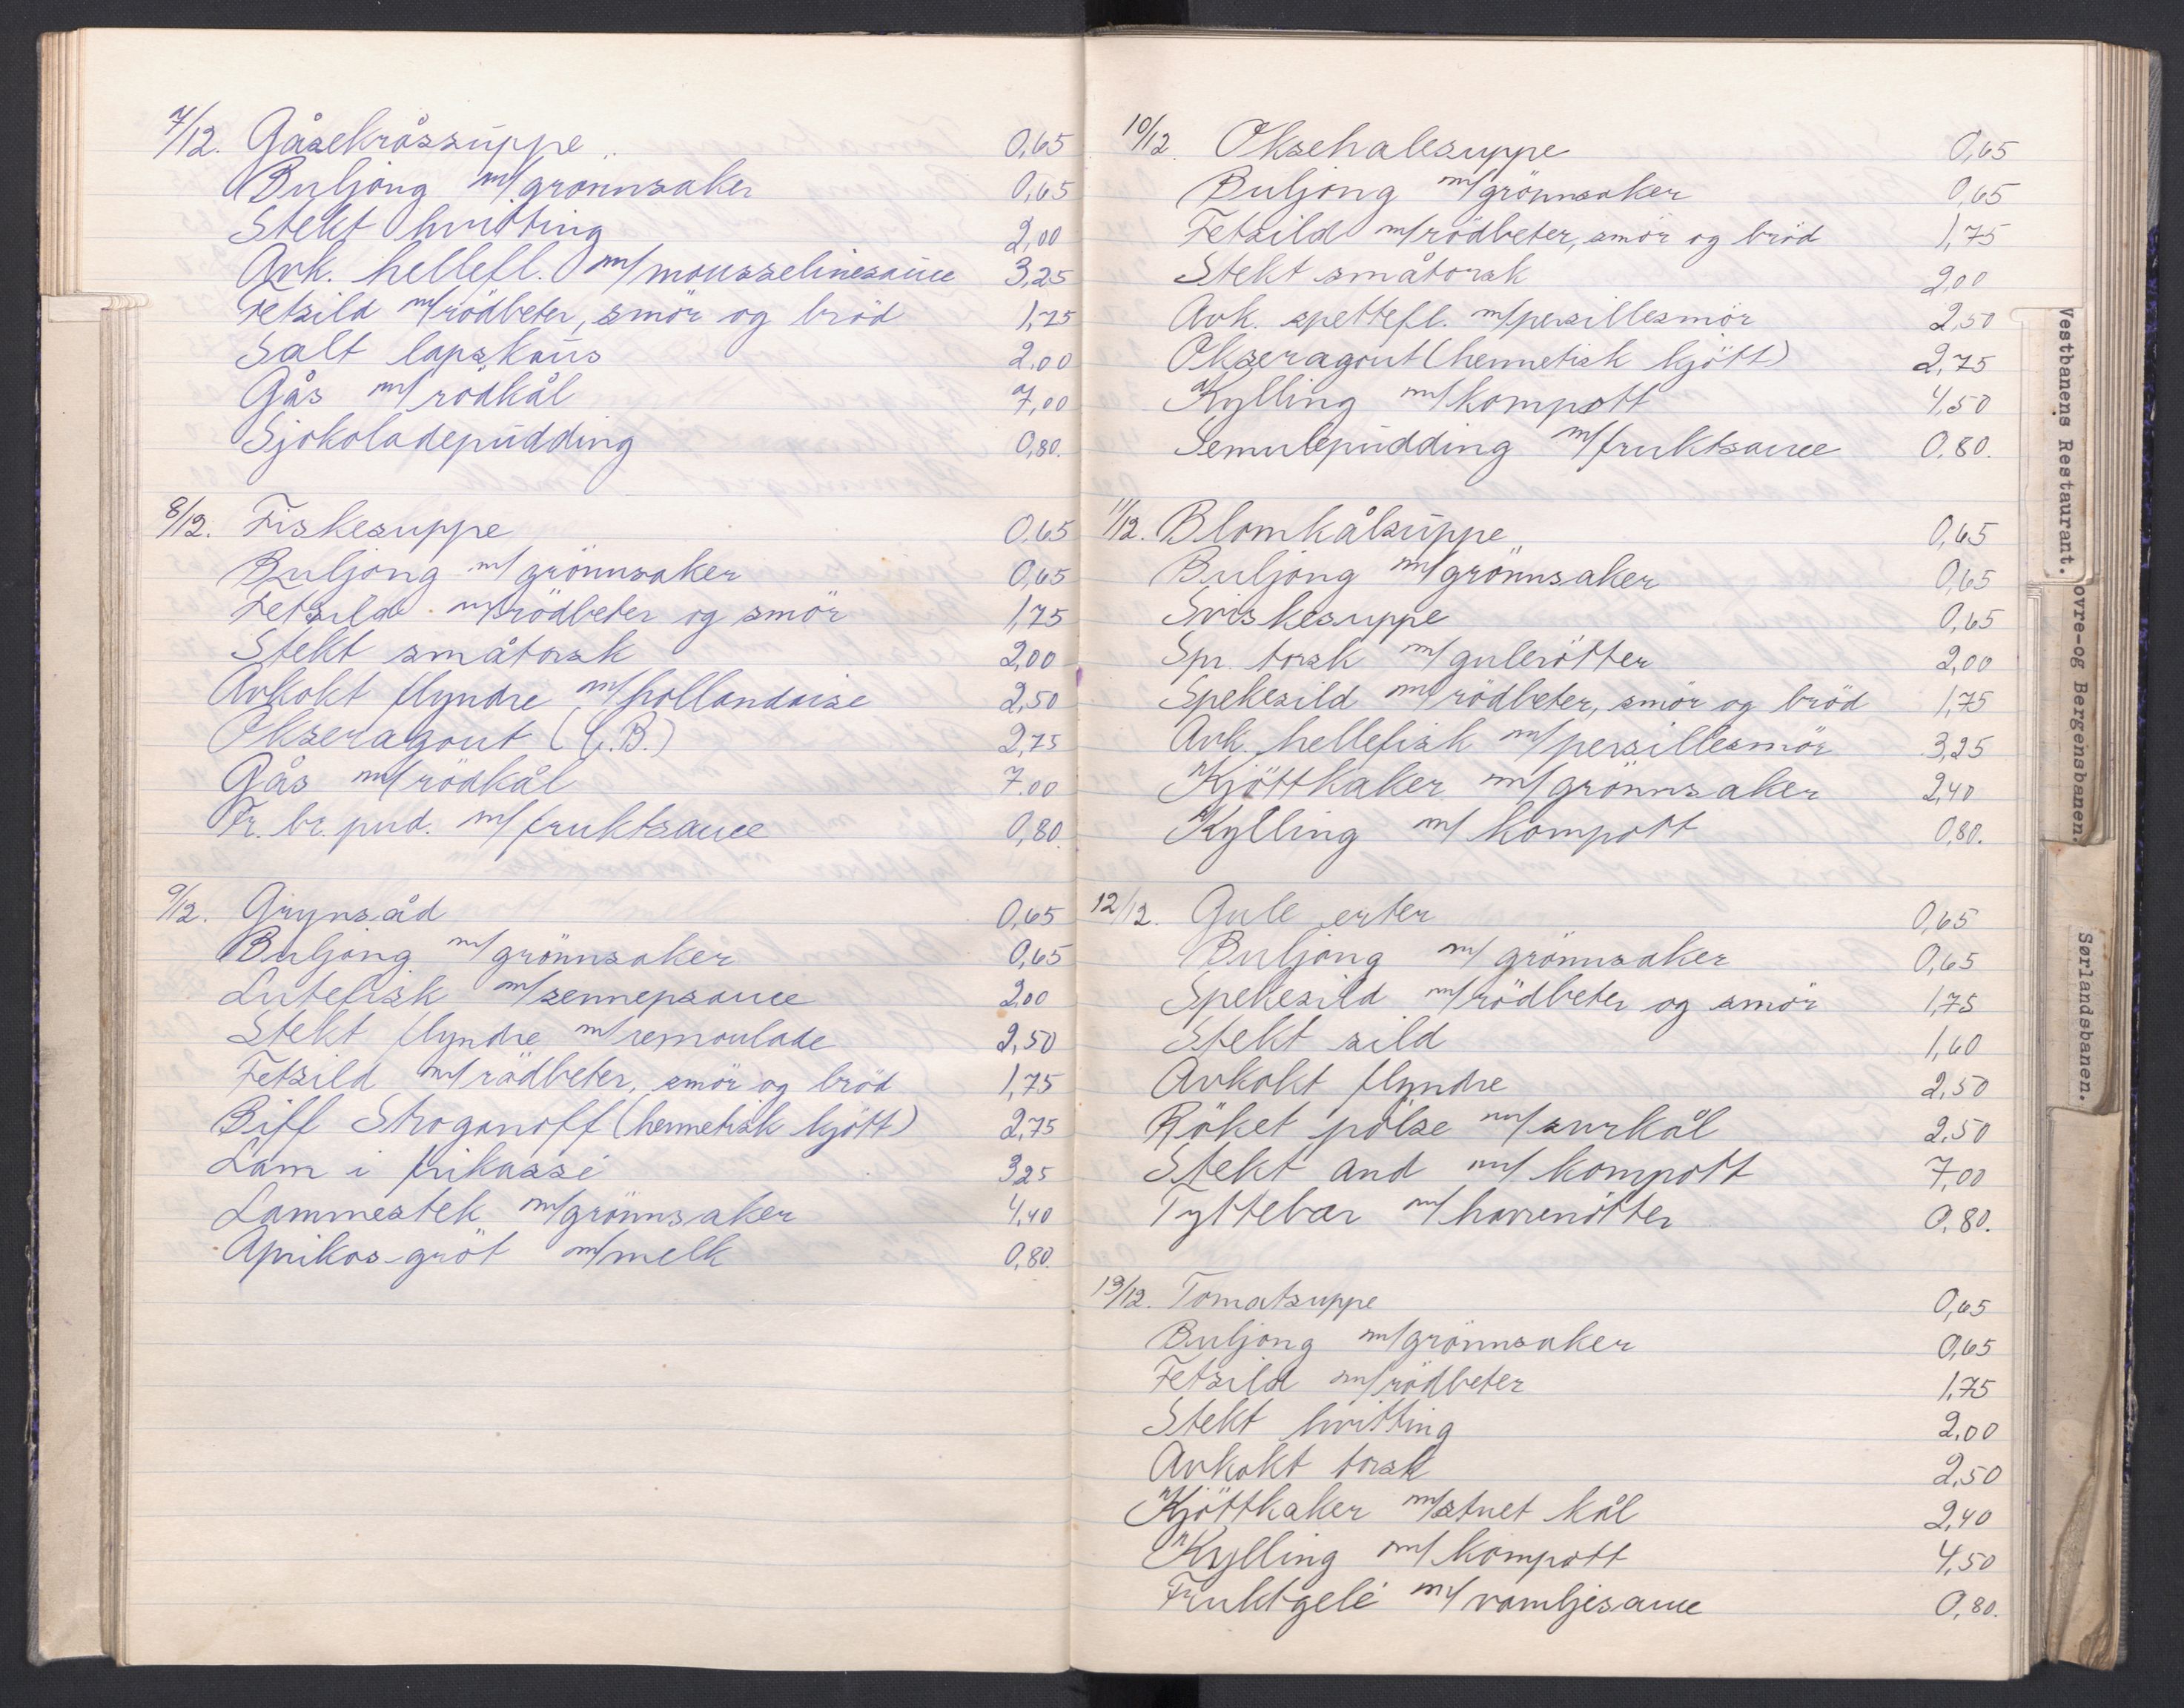 7/12. Gåsekråssuppe 0,65
Buljong m/grønnsaker 0,65
Stekt hvitting 2,00
Avk. hellefl. m/mousselinesauce 3,25
Fetsild m/rödbeter, smör og bröd 1,75
Salt lapskaus 2,00
Gås m/rødkål 7,00
Sjokoladepudding 0,80.
8/12. Fiskesuppe 0,65
Buljong m/grönnsaker 0,65
Fetsild m/rödbeter og smör 1,75
Stekt småtorsk 2,00
Avkokt flyndre m/hollandaise 2,50
Okseragout (C.B.) 2,75
Gås m/rödkål 7.00
Fr. br. pud. m/fruktsauce 0,80.
9/12. Grynsåd 0,65
Buljong m/grönnsaker 0,65
Lutefisk m/sennepsauce 2,00
Stekt flyndre m/remoulade 2,50
Fetsild m/rödbeter, smör og bröd 1,75
Biff Stroganoff (hermetisk kjött) 2,75
Lam i frikassé 3,25
Lammestek m/grönnsaker 4,40
Aprikos-gröt m/melk 0,80.
10/12. Oksehalesuppe 0,65
Buljong m/grönnsaker 0,65
Fetsild m/rödbeter, smör og bröd 1,75
Stekt småtorsk 2,00
Avk. spettefl. m/persillesmör 2,50
Okseragout (hermetisk kjött) 2,75
Kylling m/kompott 4,50
Semulepudding m/fruktsauce 0.80.
11/12. Blomkålsuppe 0,65
Buljong m/grönnsaker 0,65
Sviskesuppe 0,65
Spr. torsk m/gulerötter 2,00
Spekesild m/rödbeter, smör og bröd 1,75
Avk. hellefisk m/persillesmör 3,25
Kjöttkaker m/grönnsaker 2,40
Kylling m/kompott 0,80.
12/12. Gule erter 0,65
Buljong m/grönnsaker 0,65
Spekesild m/rödbeter og smör 1,75
Stekt sild 1,60
Avkokt flyndre 2,50
Röket pölse m/surkål 2,50
Stekt and m/kompott 7,00
Tyttebær m/havrenötter 0,80.
13/12. Tomatsuppe 0,65
Buljong m/grönnsaker 0,65
Fetsild m/rödbeter 1,75
Stekt hvitting 2,00
Avkokt torsk 2,50
Kjöttkaker m/stuet kål 2,40
Kylling m/kompott 4,50
Fruktgelé m/vaniljesauce 0,80.
Vestbanens Restaurant.
ovre-og Bergensbanen.
Sørlandsbanen.